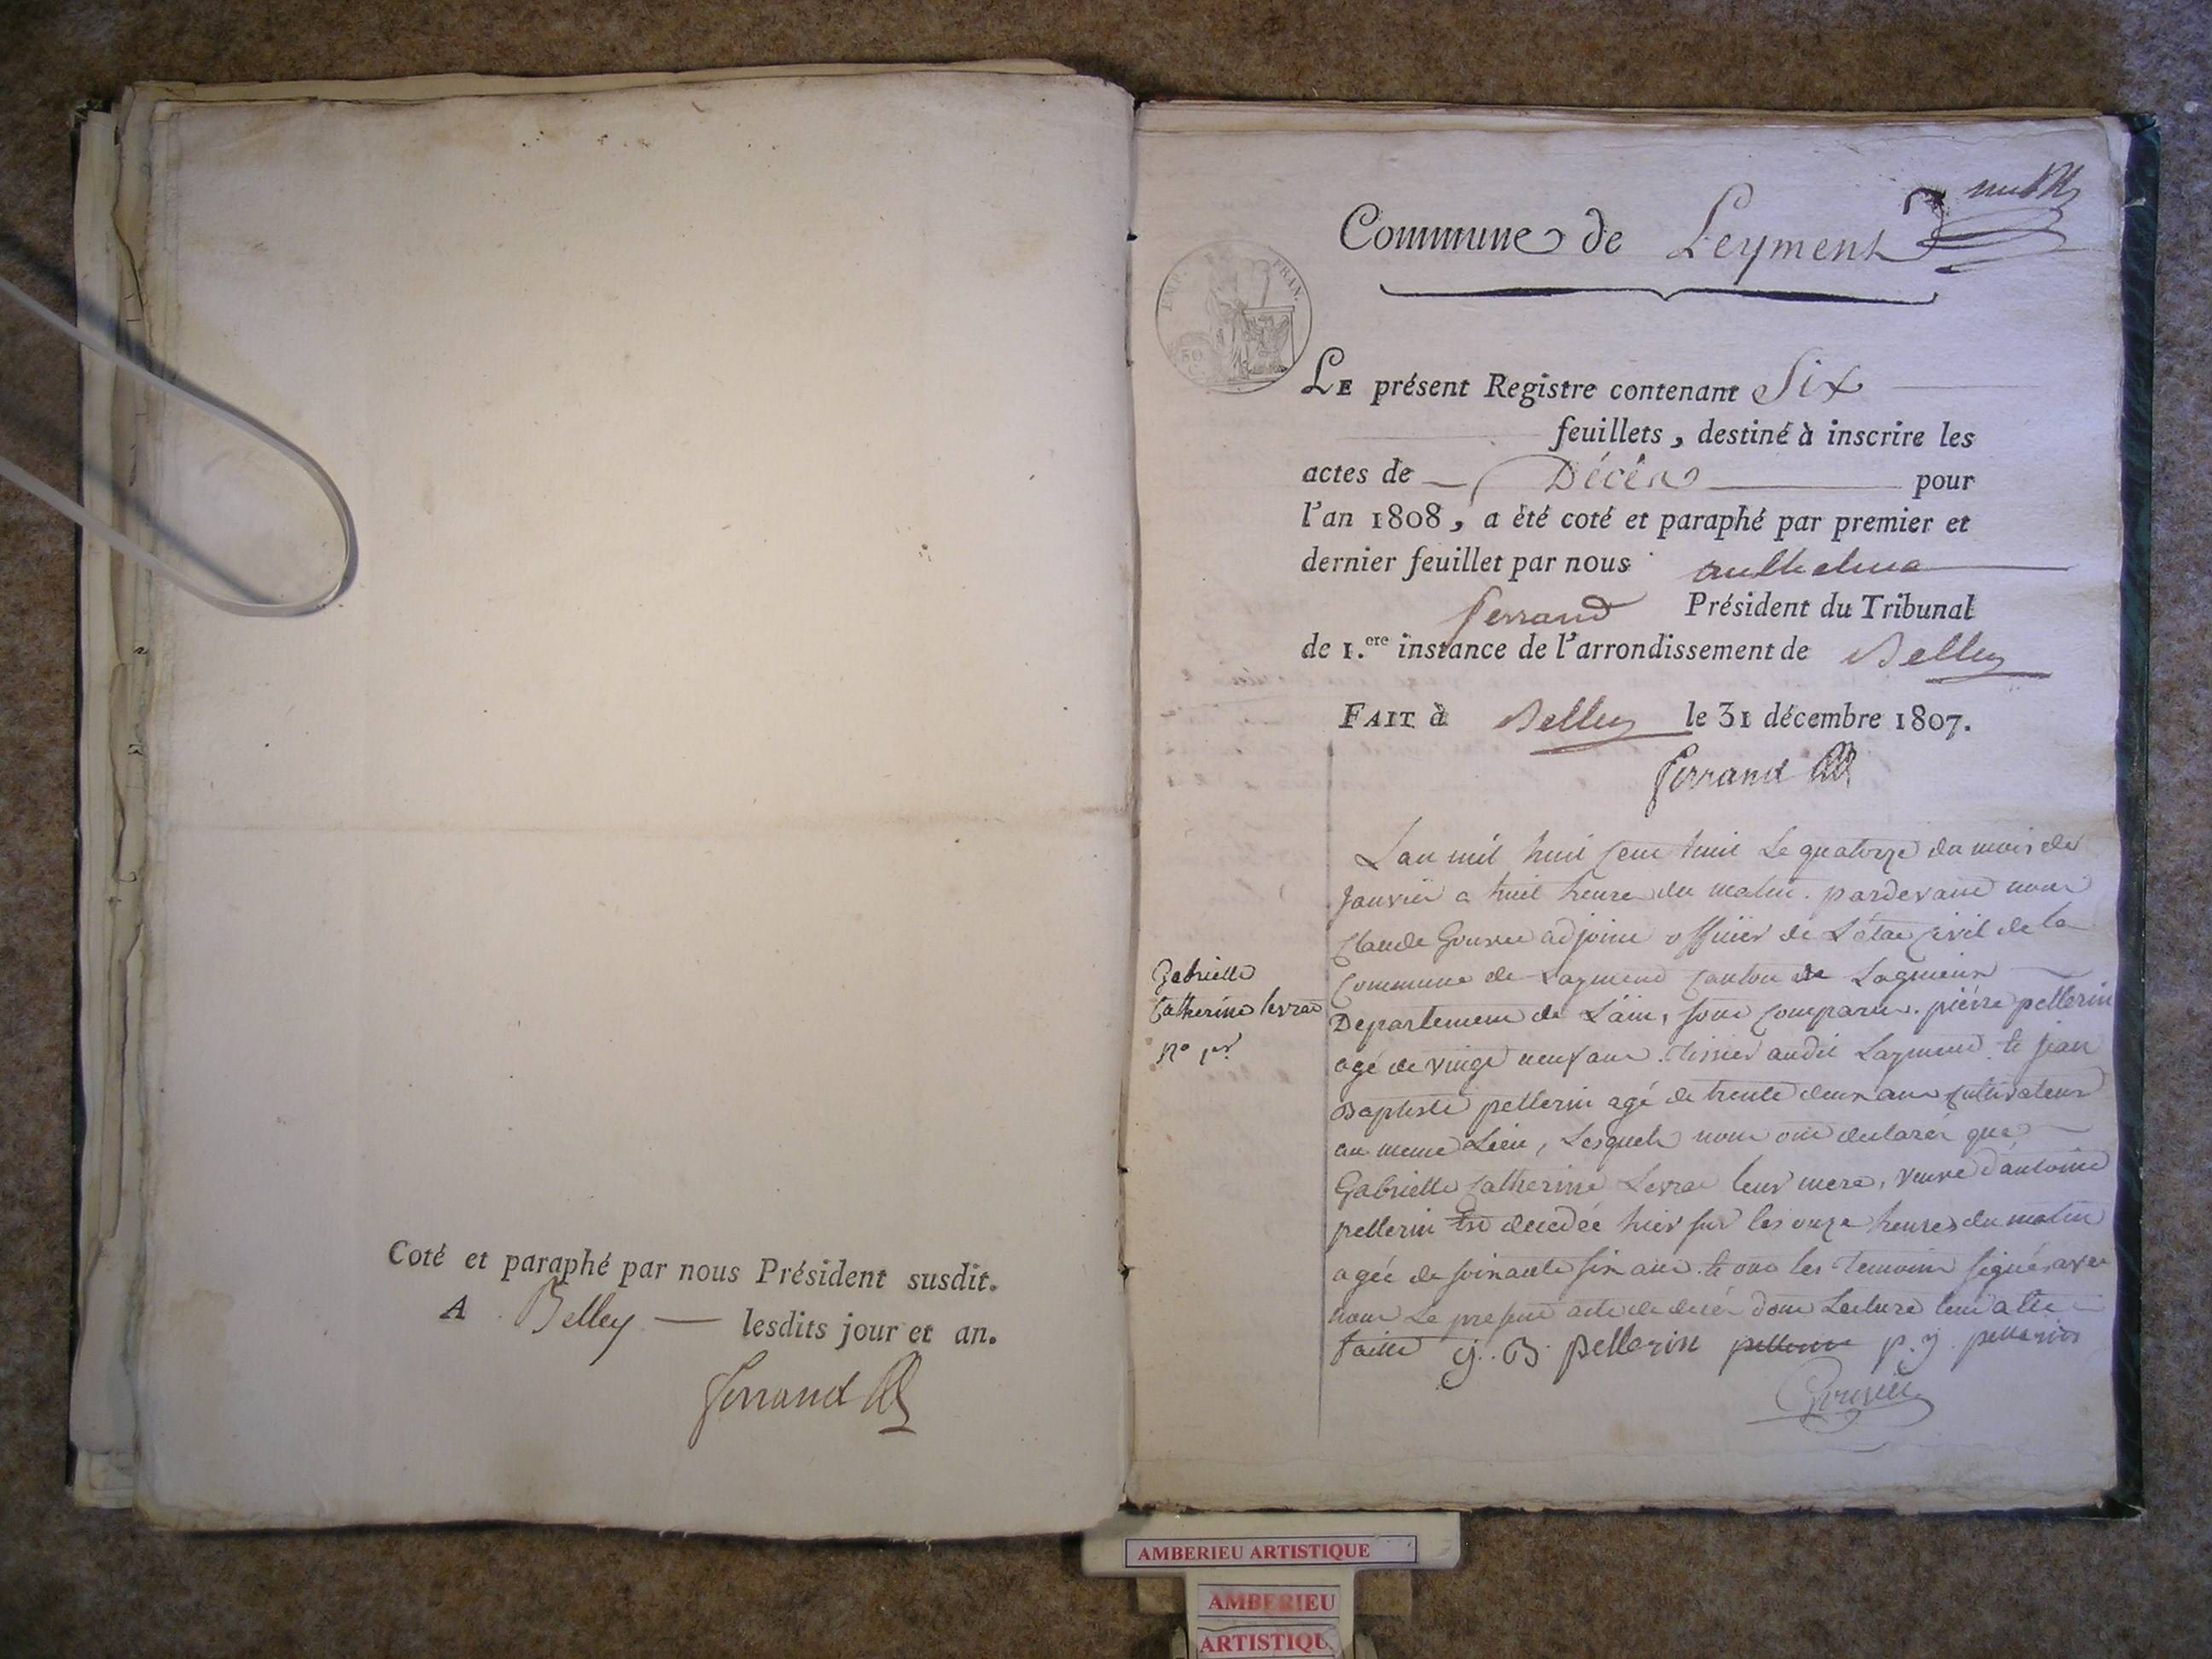 Coté et paraphé par nous Président susdit.
A Belley — lesdits jour et an.
ferrand
Commune de Leyment
EMP. FRAN.
50
LE présent Registre contenant Six
feuillets, destiné à inscrire les
actes de Décès pour
l'an 1808, a été coté et paraphé par premier et
dernier feuillet par nous anthelme
ferrand Président du Tribunal
de 1.ere instance de l'arrondissement de Belley
FAIT à Belley le 31 décembre 1807.
ferrand
Gabrielle
Catherine levrat
No 1er
Lan mil huit cent huit Le quatorze du mois de
Janvier a huit heure du matin. pardevant nous
Claude adjoint officier de L'état civil de la
Commune de Layment Canton de Lagnieux
Departement de L'ain, sont comparus. pierre pellerin
agé de vingt neuf ans. tissier audit Layment. et jean
Baptiste pellerin agé de trente deux ans cultivateur
au meme Lieu, Lesquels nous ont declaré que
Gabrielle Catherine Levrat leur mere, veuve d'antoine
pellerin est decedée hier sur les onze heures du matin
agée de soixante six ans. et ont les temoins signés avec
nous Le present acte de decés dont Lecture leur a eté
faitte j. B. pellerin pellerin p. j. pellerin
AMBERIEU ARTISTIQUE
AMBERIEU
ARTISTIQU